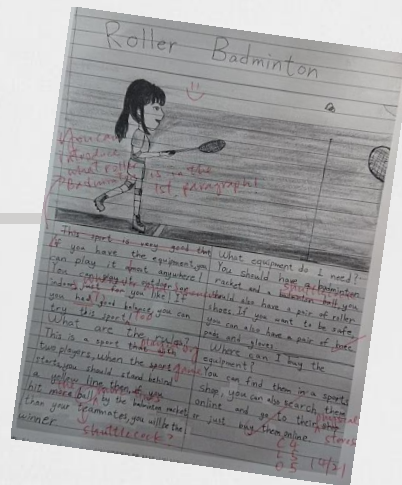 Roller Badminton
You can
introduce
what roller
Badminton is in the
1st paragraph!
This sport is very good that
If you have the equipment, you
can play it almost anywhere!
You can play outdoor or
indoor, just you like! If
you had good balance, you can
try this sport!
What are the rules?
This is a sport that with
two players, when the sport
starts you should stand behind
a line, then if you
hit more ball by the badminton racket
than your teammates, you will be the
winner
shuttlecock?
What equipment do I need?
You should have a badminton
racket and a badminton ball, you
should also have a pair of roller
shoes. If you want to be safe
you can also have a pair of knee
pads and gloves
Where can I buy the
equipment?
You can find them in a sports
shop, you can also search them
online and go to their
or just buy them online.
physical
stores
C 4
L 5
O 5